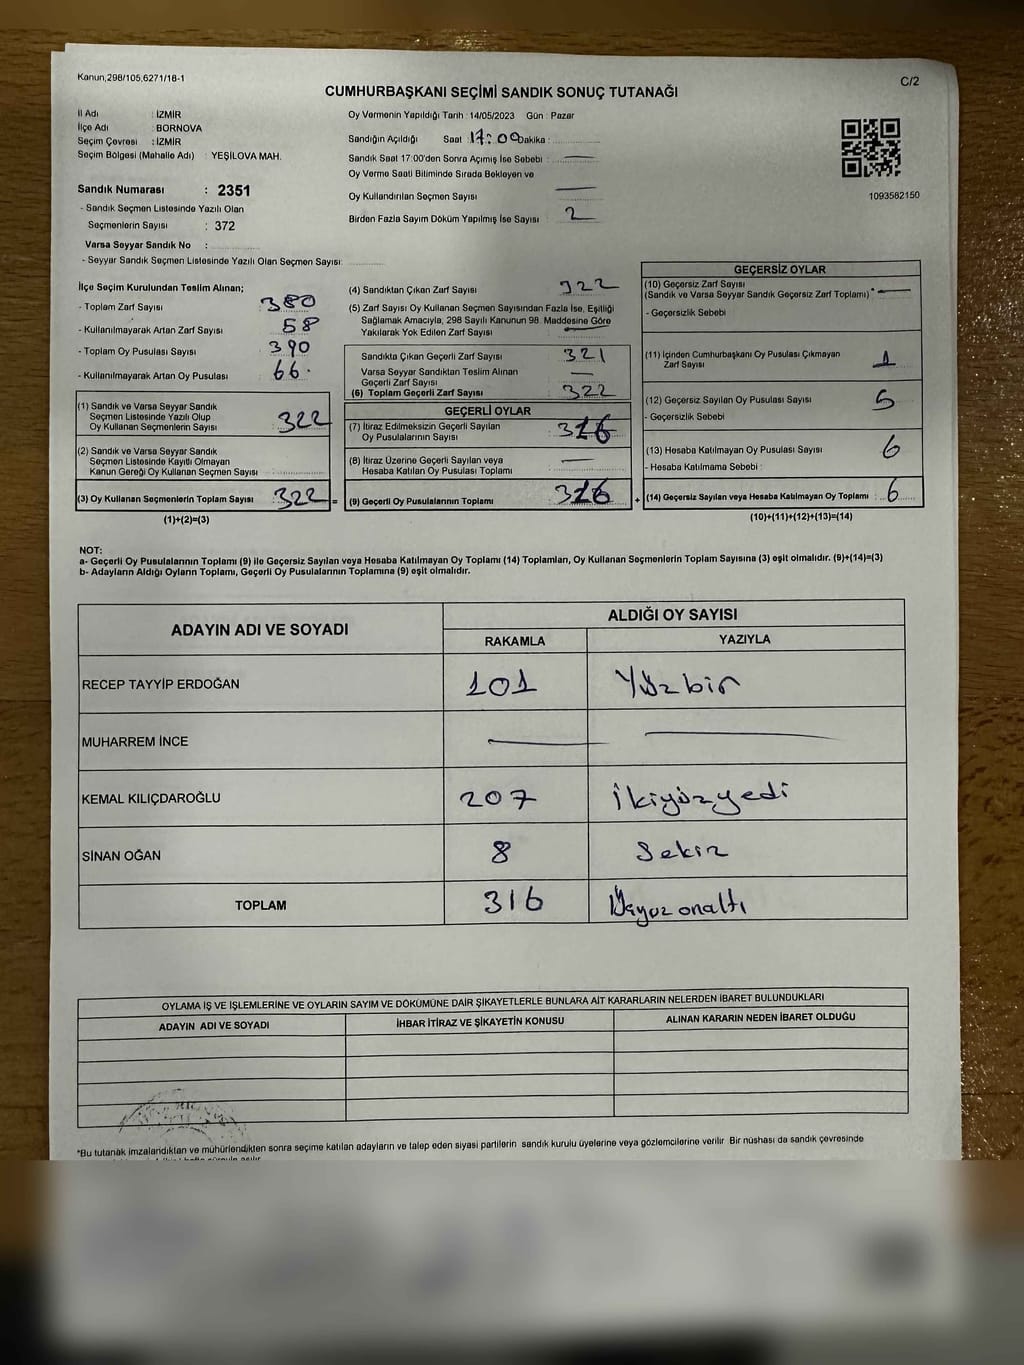 Kanun,298/105,6271/18-1
C/2
CUMHURBAŞKANI SEÇİMİ SANDIK SONUÇ TUTANAĞI
İl Adı : İZMİR
İlçe Adı : BORNOVA
Seçim Çevresi : İZMİR
Seçim Bölgesi (Mahalle Adı) : YEŞİLOVA MAH.
Sandık Numarası : 2351
- Sandık Seçmen Listesinde Yazılı Olan
Seçmenlerin Sayısı : 372
Varsa Seyyar Sandık No :
- Seyyar Sandık Seçmen Listesinde Yazılı Olan Seçmen Sayısı:
Oy Vermenin Yapıldığı Tarih : 14/05/2023 Gün : Pazar
Sandığın Açıldığı Saat : 17:00 Dakika :
Sandık Saat 17:00'den Sonra Açımış İse Sebebi : —
Oy Verme Saati Bitiminde Sırada Bekleyen ve
Oy Kullandırılan Seçmen Sayısı —
Birden Fazla Sayım Döküm Yapılmış İse Sayısı : 2
1093582150
İlçe Seçim Kurulundan Teslim Alınan;
- Toplam Zarf Sayısı : 380
- Kullanılmayarak Artan Zarf Sayısı : 58
- Toplam Oy Pusulası Sayısı : 390
- Kullanılmayarak Artan Oy Pusulası : 66
(1) Sandık ve Varsa Seyyar Sandık
Seçmen Listesinde Yazılı Olup
Oy Kullanan Seçmenlerin Sayısı : 322
(2) Sandık ve Varsa Seyyar Sandık
Seçmen Listesinde Kayıtlı Olmayan
Kanun Gereği Oy Kullanan Seçmen Sayısı :
(3) Oy Kullanan Seçmenlerin Toplam Sayısı : 322 =
(1)+(2)=(3)
(4) Sandıktan Çıkan Zarf Sayısı : 322
(5) Zarf Sayısı Oy Kullanan Seçmen Sayısından Fazla İse, Eşitliği
Sağlamak Amacıyla, 298 Sayılı Kanunun 98. Maddesine Göre
Yakılarak Yok Edilen Zarf Sayısı : —
Sandıkta Çıkan Geçerli Zarf Sayısı : 321
Varsa Seyyar Sandıktan Teslim Alınan
Geçerli Zarf Sayısı : —
(6) Toplam Geçerli Zarf Sayısı : 322
GEÇERLİ OYLAR
(7) İtiraz Edilmeksizin Geçerli Sayılan
Oy Pusulalarının Sayısı : 316
(8) İtiraz Üzerine Geçerli Sayılan veya
Hesaba Katılan Oy Pusulası Toplamı : —
(9) Geçerli Oy Pusulalarının Toplamı : 316 +
GEÇERSİZ OYLAR
(10) Geçersiz Zarf Sayısı
(Sandık ve Varsa Seyyar Sandık Geçersiz Zarf Toplamı) : —
- Geçersizlik Sebebi :
(11) İçinden Cumhurbaşkanı Oy Pusulası Çıkmayan
Zarf Sayısı : 1
(12) Geçersiz Sayılan Oy Pusulası Sayısı : 5
- Geçersizlik Sebebi :
(13) Hesaba Katılmayan Oy Pusulası Sayısı : 6
- Hesaba Katılmama Sebebi :
(14) Geçersiz Sayılan veya Hesaba Katılmayan Oy Toplamı : 6
(10)+(11)+(12)+(13)=(14)
NOT:
a- Geçerli Oy Pusulalarının Toplamı (9) ile Geçersiz Sayılan veya Hesaba Katılmayan Oy Toplamı (14) Toplamları, Oy Kullanan Seçmenlerin Toplam Sayısına (3) eşit olmalıdır. (9)+(14)=(3)
b- Adayların Aldığı Oyların Toplamı, Geçerli Oy Pusulalarının Toplamına (9) eşit olmalıdır.
ADAYIN ADI VE SOYADI ALDIĞI OY SAYISI
RAKAMLA YAZIYLA
RECEP TAYYİP ERDOĞAN 101 Yüzbir
MUHARREM İNCE — —
KEMAL KILIÇDAROĞLU 207 İkiyüzyedi
SİNAN OĞAN 8 Sekiz
TOPLAM 316 Üçyüzonaltı
OYLAMA İŞ VE İŞLEMLERİNE VE OYLARIN SAYIM VE DÖKÜMÜNE DAİR ŞİKAYETLERLE BUNLARA AİT KARARLARIN NELERDEN İBARET BULUNDUKLARI
ADAYIN ADI VE SOYADI İHBAR İTİRAZ VE ŞİKAYETİN KONUSU ALINAN KARARIN NEDEN İBARET OLDUĞU
*Bu tutanak imzalandıktan ve mühürlendikten sonra seçime katılan adayların ve talep eden siyasi partilerin sandık kurulu üyelerine veya gözlemcilerine verilir. Bir nüshası da sandık çevresinde